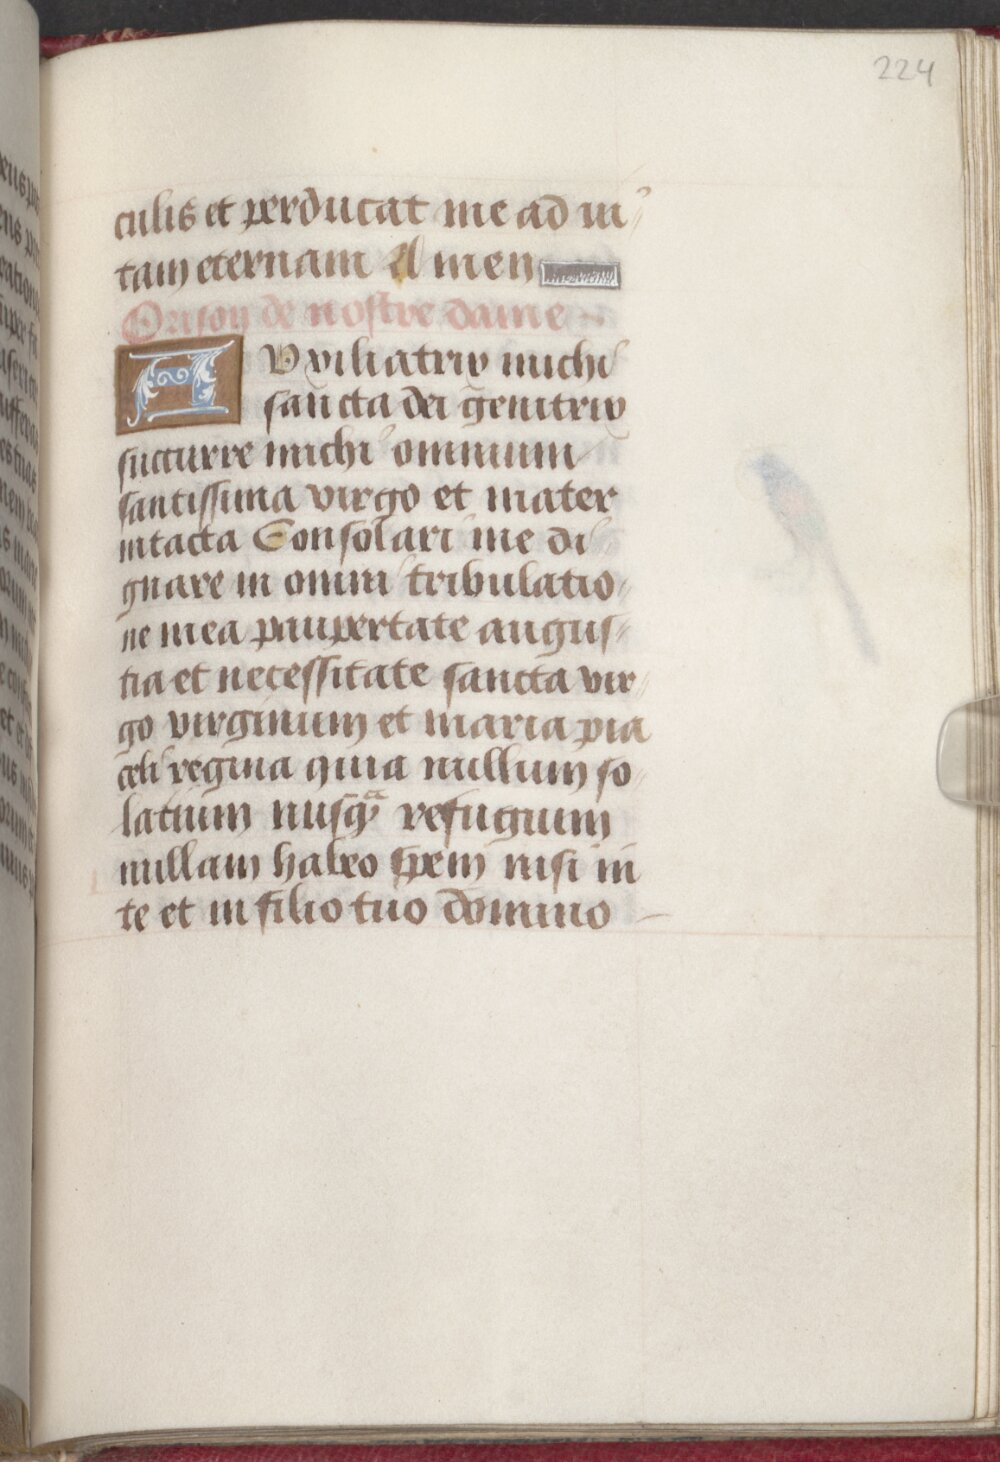 224
culis et perducat me ad vi
tam eternam Amen
Orison de nostre dame
AUxiliatrix michi
sancta dei genitrix
succurre michi omnium
santissima virgo et mater
intacta Consolari me di
gnare in omni tribulatio
ne mea paupertate angus
tia et necessitate sancta vir
go virginum et maria pia
celi regina quia nullum so
latium nusqᵃ refugium
nullam habeo spem nisi in
te et in filio tuo domino